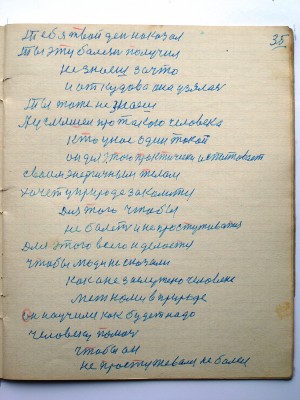 35
Тебя твой ден наказал
Ты эту балезн получил
не знаеш за что
и откудова она узялас
Ты тоже не знаеш
Луслышен про такого человека
кто у нас один такой
он для этого практически испытовает
сваим энергичным телам
хочет у природе закалитца
Для того чтобы
не балеть и не простуживатца
Для этого всего и делаетца
чтобы люди не сказали
как оне заслужено человеке
меж ному в природе
он научил как будет надо
человеку помоч
чтобы он
не простужевалса не балел